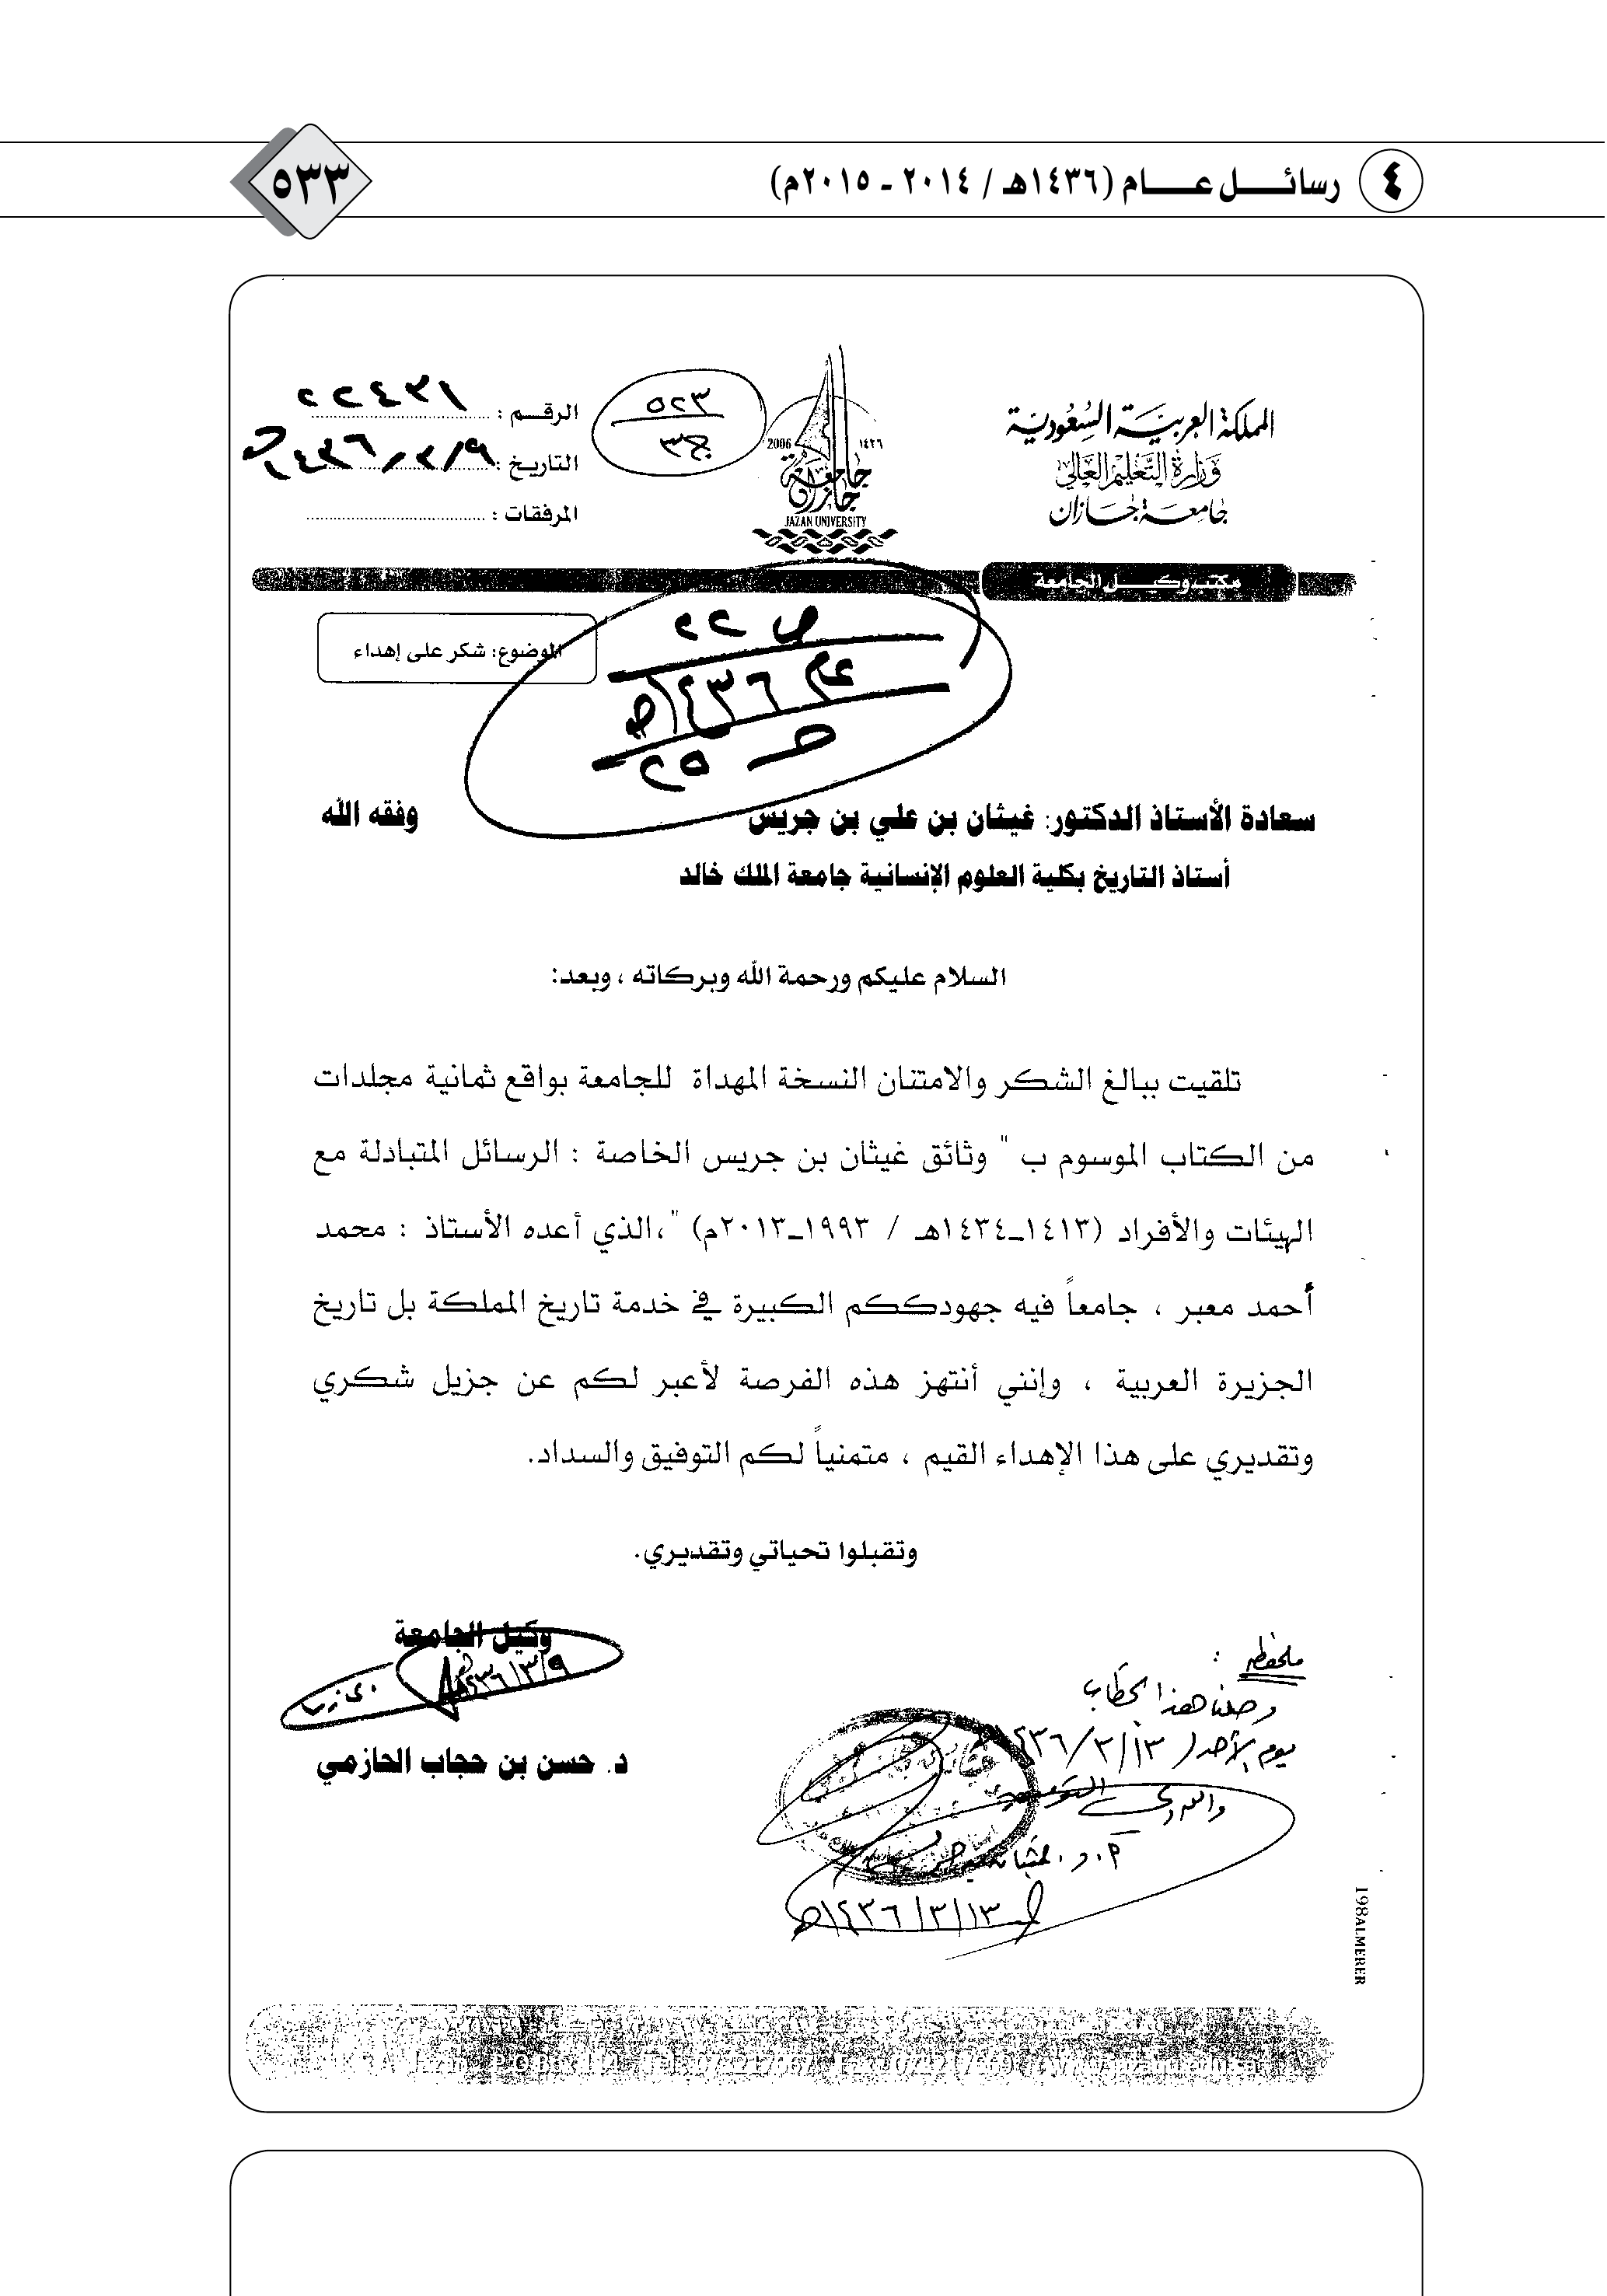 ٤ رسائل عام (١٤٣٦هـ / ٢٠١٤ - ٢٠١٥م)
٥٣٣
المملكة العربية السعودية
وزارة التعليم العالي
جامعة جازان
2006 ١٤٢٦
جامعة
جازان
JAZAN UNIVERSITY
٥٢٣
ج٣
الرقم : ٢٢٤٣١
التاريخ : ١٤٣٦/٣/٩هـ
المرفقات :
مكتب وكيل الجامعة
ص ٢٢
عام ١٤٣٦هـ
ح ٢٥
الموضوع: شكر على إهداء
سعادة الأستاذ الدكتور: غيثان بن علي بن جريس وفقه الله
أستاذ التاريخ بكلية العلوم الإنسانية جامعة الملك خالد
السلام عليكم ورحمة الله وبركاته ، وبعد:
تلقيت ببالغ الشكر والامتنان النسخة المهداة للجامعة بواقع ثمانية مجلدات
من الكتاب الموسوم ب " وثائق غيثان بن جريس الخاصة : الرسائل المتبادلة مع
الهيئات والأفراد (١٤١٣_١٤٣٤هـ / ١٩٩٣_٢٠١٣م) "،الذي أعده الأستاذ : محمد
أحمد معبر ، جامعاً فيه جهودككم الكبيرة في خدمة تاريخ المملكة بل تاريخ
الجزيرة العربية ، وإنني أنتهز هذه الفرصة لأعبر لكم عن جزيل شكري
وتقديري على هذا الإهداء القيم ، متمنياً لكم التوفيق والسداد.
وتقبلوا تحياتي وتقديري.
وكيل الجامعة
١٤٣٦/٣/٩
د. حسن بن حجاب الحازمي
ملحوظة :
وصلنا هذا الخطاب
يوم الأحد ١٤٣٦/٣/١٣
والله ولي التوفيق
أ.د. غيثان بن جريس
١٤٣٦/٣/١٣هـ
198ALMERER